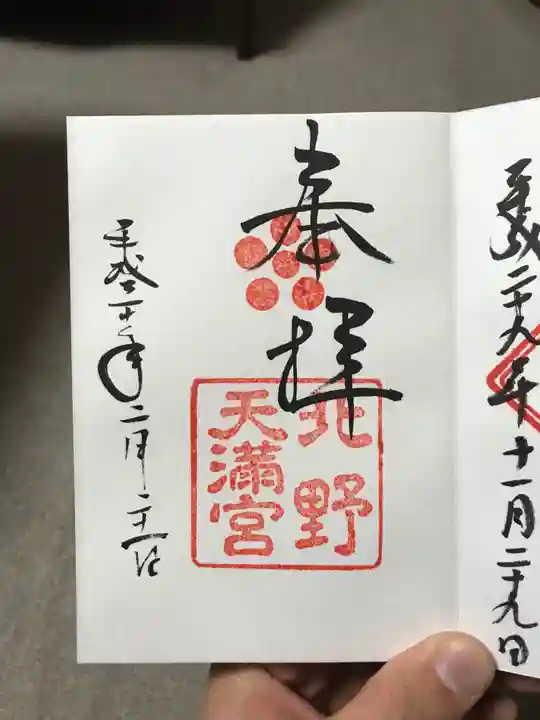 平成二十九年十一月二十九日
奉拝
北野
天満宮
二月二十五日